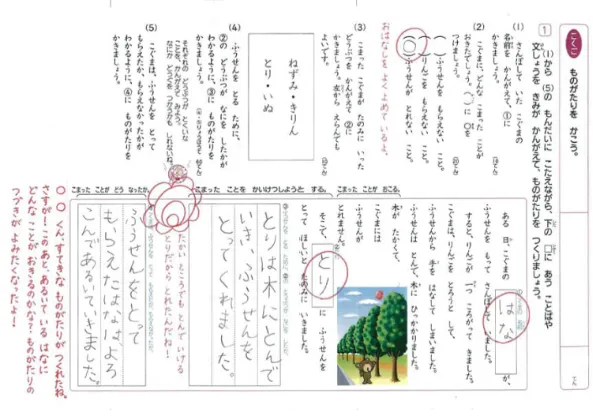 こくご
ものがたりを かこう。
1
(1)から (5)の もんだいに こたえながら、下の □に あう ことばや
文しょうを きみが かんがえて、ものがたりを つくりましょう。
てん
(1)
さんぽして いた こぐまの
名前を かんがえて、①に
かきましょう。
(2)
こぐまに、どんな こまった ことが
おきたでしょう。( )に ○を
つけましょう。
( )ふうせんを もらえない こと。
( )りんごを もらえない こと。
(○)ふうせんが とれない こと。
おはなしを よく よめて いるよ。
(3)
こまった こぐまが たのみに いった
どうぶつを かんがえて ②に
かきましょう。 次から えらんでも
よいです。
ねずみ・きりん
とり・いぬ
(4)
ふうせんを とる ために、
②の どうぶつが なにを したかが
わかるように、③に ものがたりを
かきましょう。
それぞれの どうぶつが とくいな
ことを、かんがえて みよう。
(5)
こぐまは、ふうせんを とって
もらえたか、もらえなかったかが
わかるように、④に ものがたりを
かきましょう。
こまった ことが おこる。
ある 日、こぐまの
はな
が、
ふうせんを もって さんぽして いました。
すると、りんごが 一つ ころがって きました。
こぐまは、りんごを とろうと して、
ふうせんから 手を はなして しまいました。
ふうせんは とんで、木に ひっかかりました。
木が たかくて、
こぐまには
ふうせんが
とれません。
こまった ことを かいけつしようと する。
そこで、
とり
に ふうせんを
とって ほしいと たのみに いきました。
たかい ところでも とんで いける
とりだから、とれたんだね！
とりは木にとんで
いき、ふうせんを
とってくれました。
こまった ことが どう なったか。
ふうせんをとって
もらえたはなはよろ
こんであるいていきました。
○○くん、すてきな ものがたりが つくれたね。
さすが！この あと、あるいて いる はなに
どんな ことが おきるのかな？ ものがたりの
つづきが よみたく なったよ！